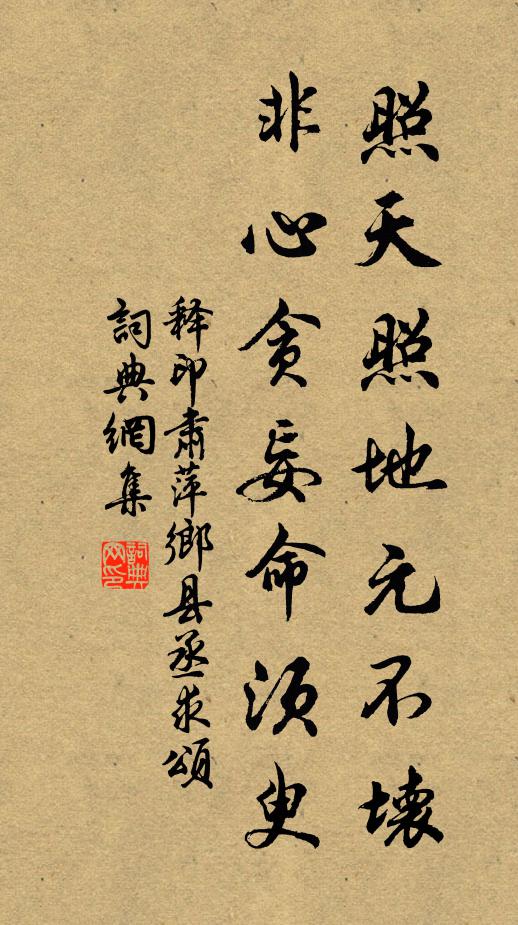 照天照地元不壞
非心貪妄命須臾
释印肅萍鄉县丞求頌
詞典網集
詞典网印